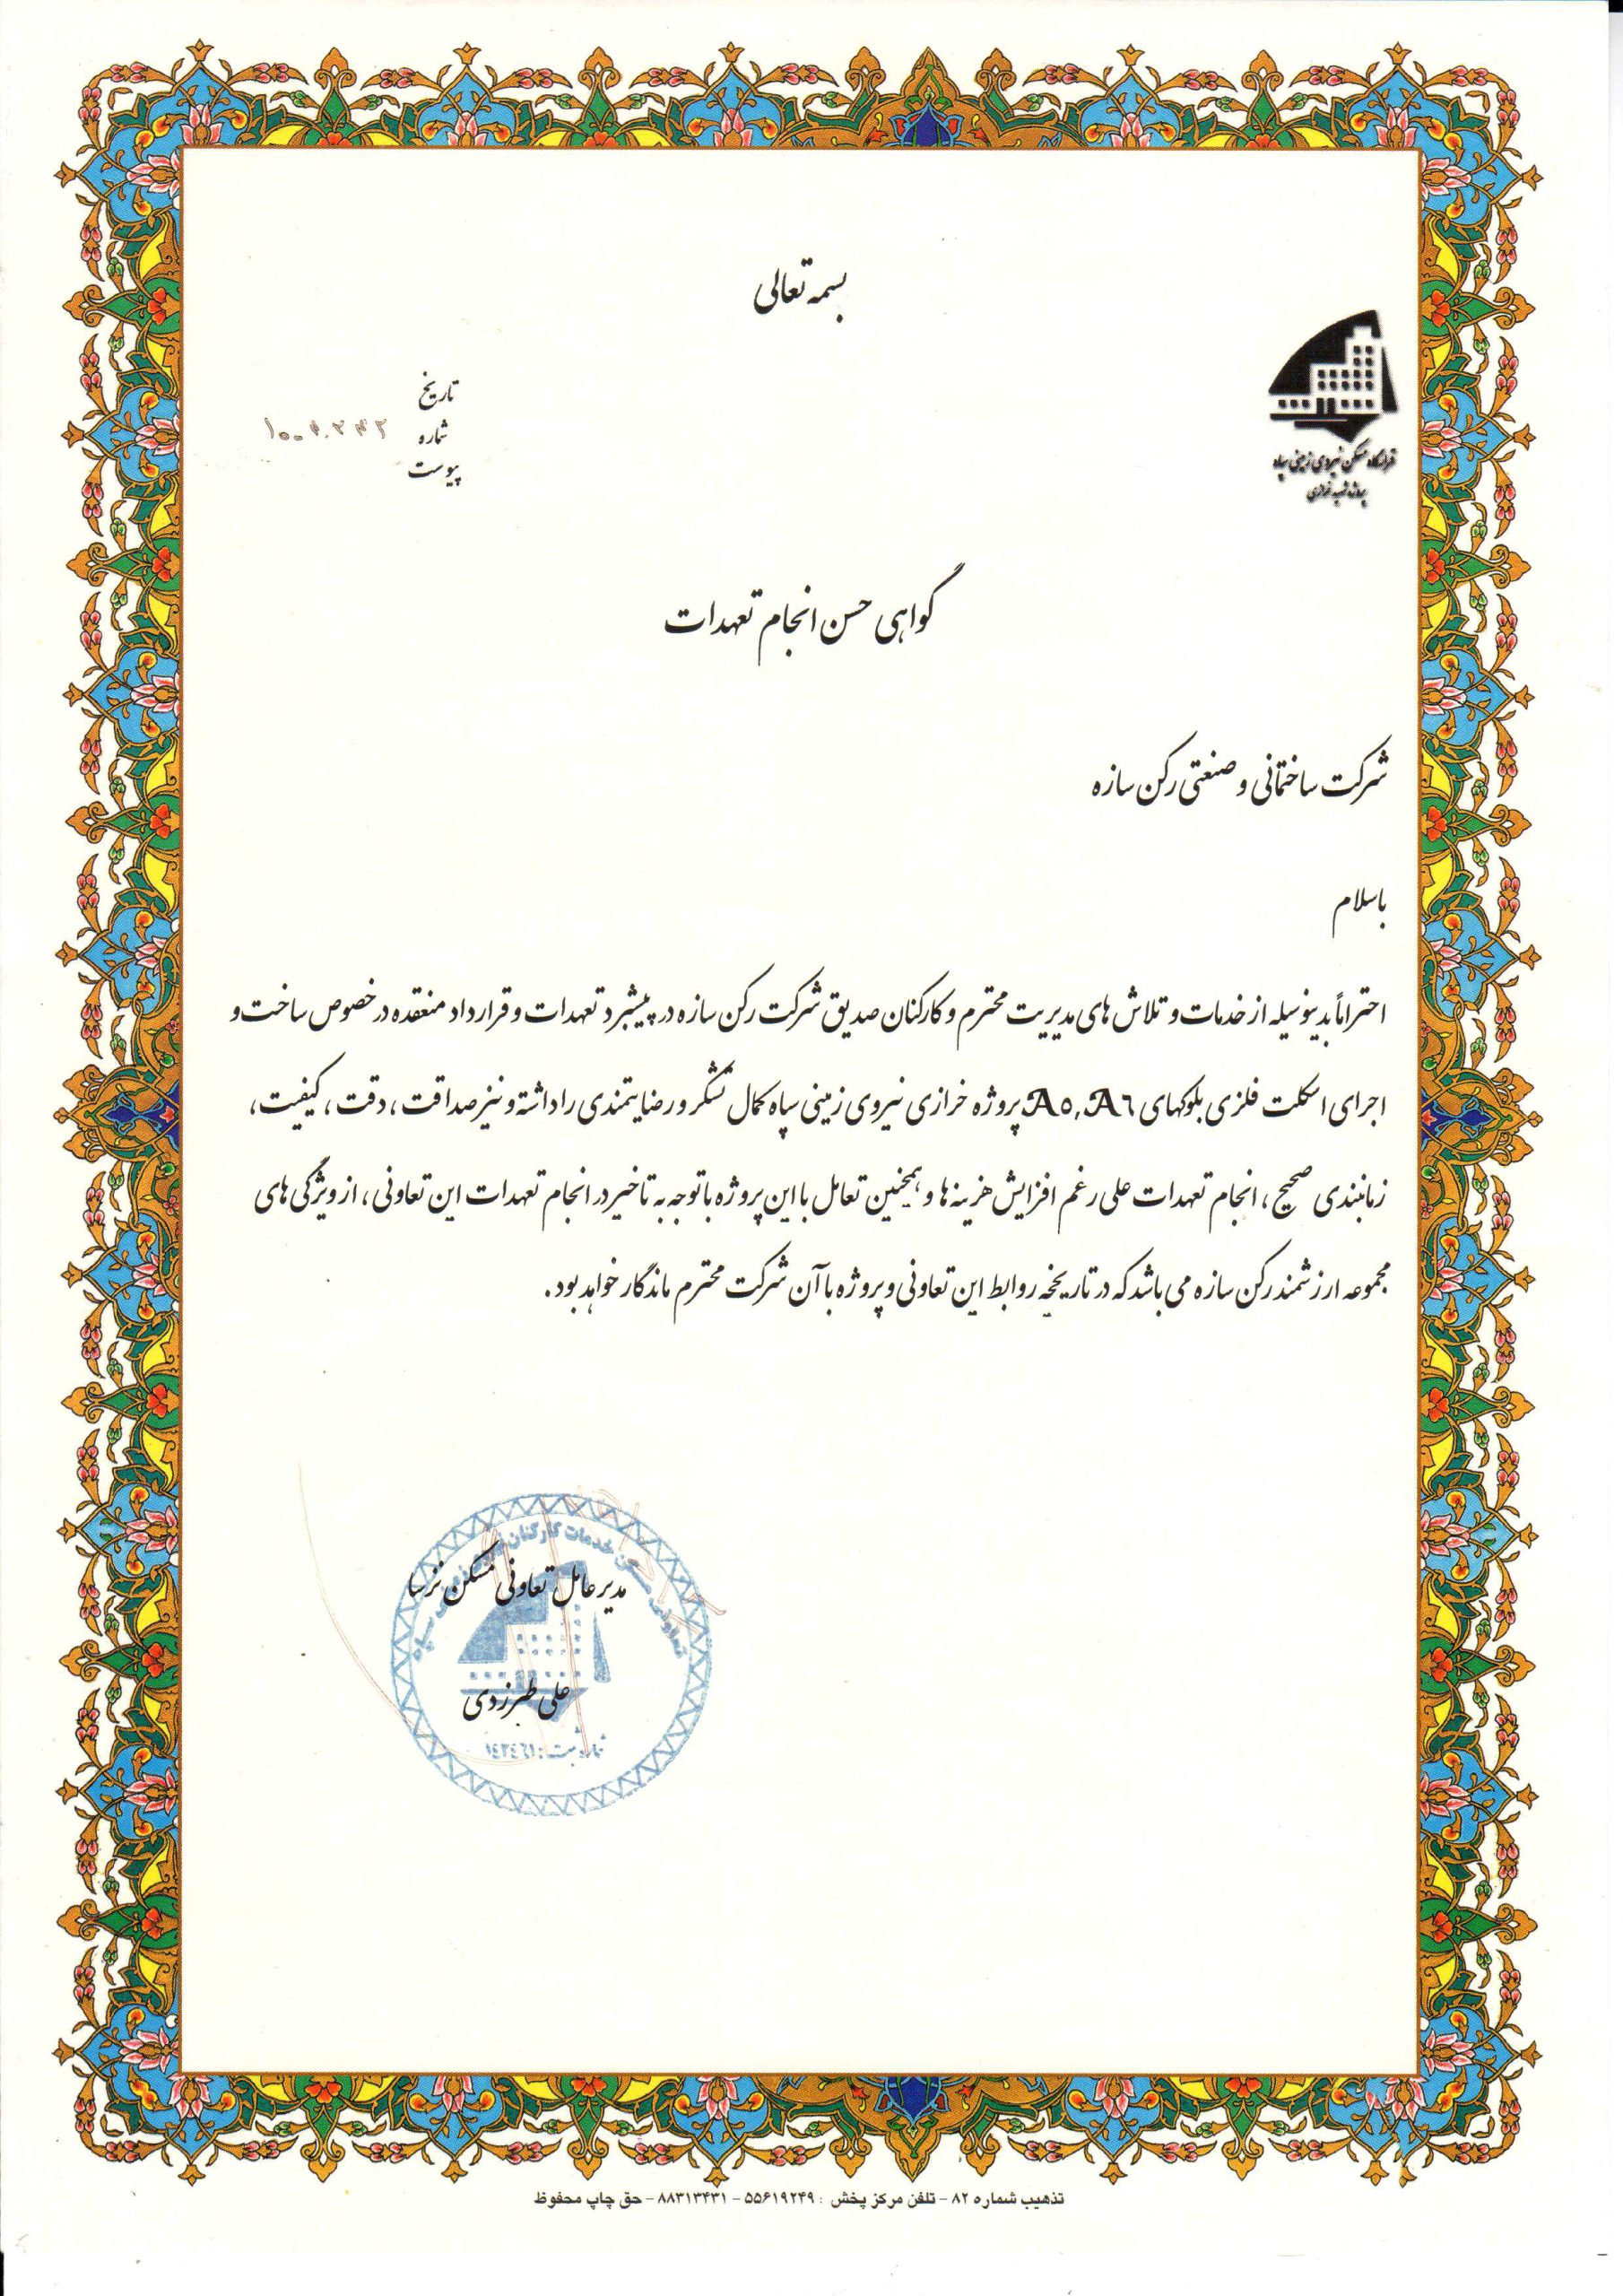 بسمه تعالی
تاریخ
شماره
پیوست
قرارگاه مسکن نیروی زمینی سپاه
پروژه شهید خرازی
گواهی حسن انجام تعهدات
شرکت ساختمانی و صنعتی رکن سازه
باسلام
احتراماً بدینوسیله از خدمات و تلاش های مدیریت محترم و کارکنان صدیق شرکت رکن سازه در پیشبرد تعهدات و قرارداد منعقده در خصوص ساخت و
اجرای اسکلت فلزی بلوکهای A٥,A٦ پروژه خرازی نیروی زمینی سپاه کمال تشکر و رضایتمندی را داشته و نیز صداقت ، دقت ، کیفیت ،
زمانبندی صحیح ، انجام تعهدات علی رغم افزایش هزینه ها و همچنین تعامل با این پروژه با توجه به تاخیر در انجام تعهدات این تعاونی ، از ویژگی های
مجموعه ارزشمند رکن سازه می باشد که در تاریخچه روابط این تعاونی و پروژه با آن شرکت محترم ماندگار خواهد بود .
تعاونی مسکن خدمات کارکنان سپاه
مدیر عامل تعاونی مسکن نزسا
علی طبرزدی
شماره ثبت :
تذهیب شماره ۸۲ - تلفن مرکز پخش : ۵۵۶۱۹۲۴۹ - ۸۸۳۱۳۴۳۱ - حق چاپ محفوظ